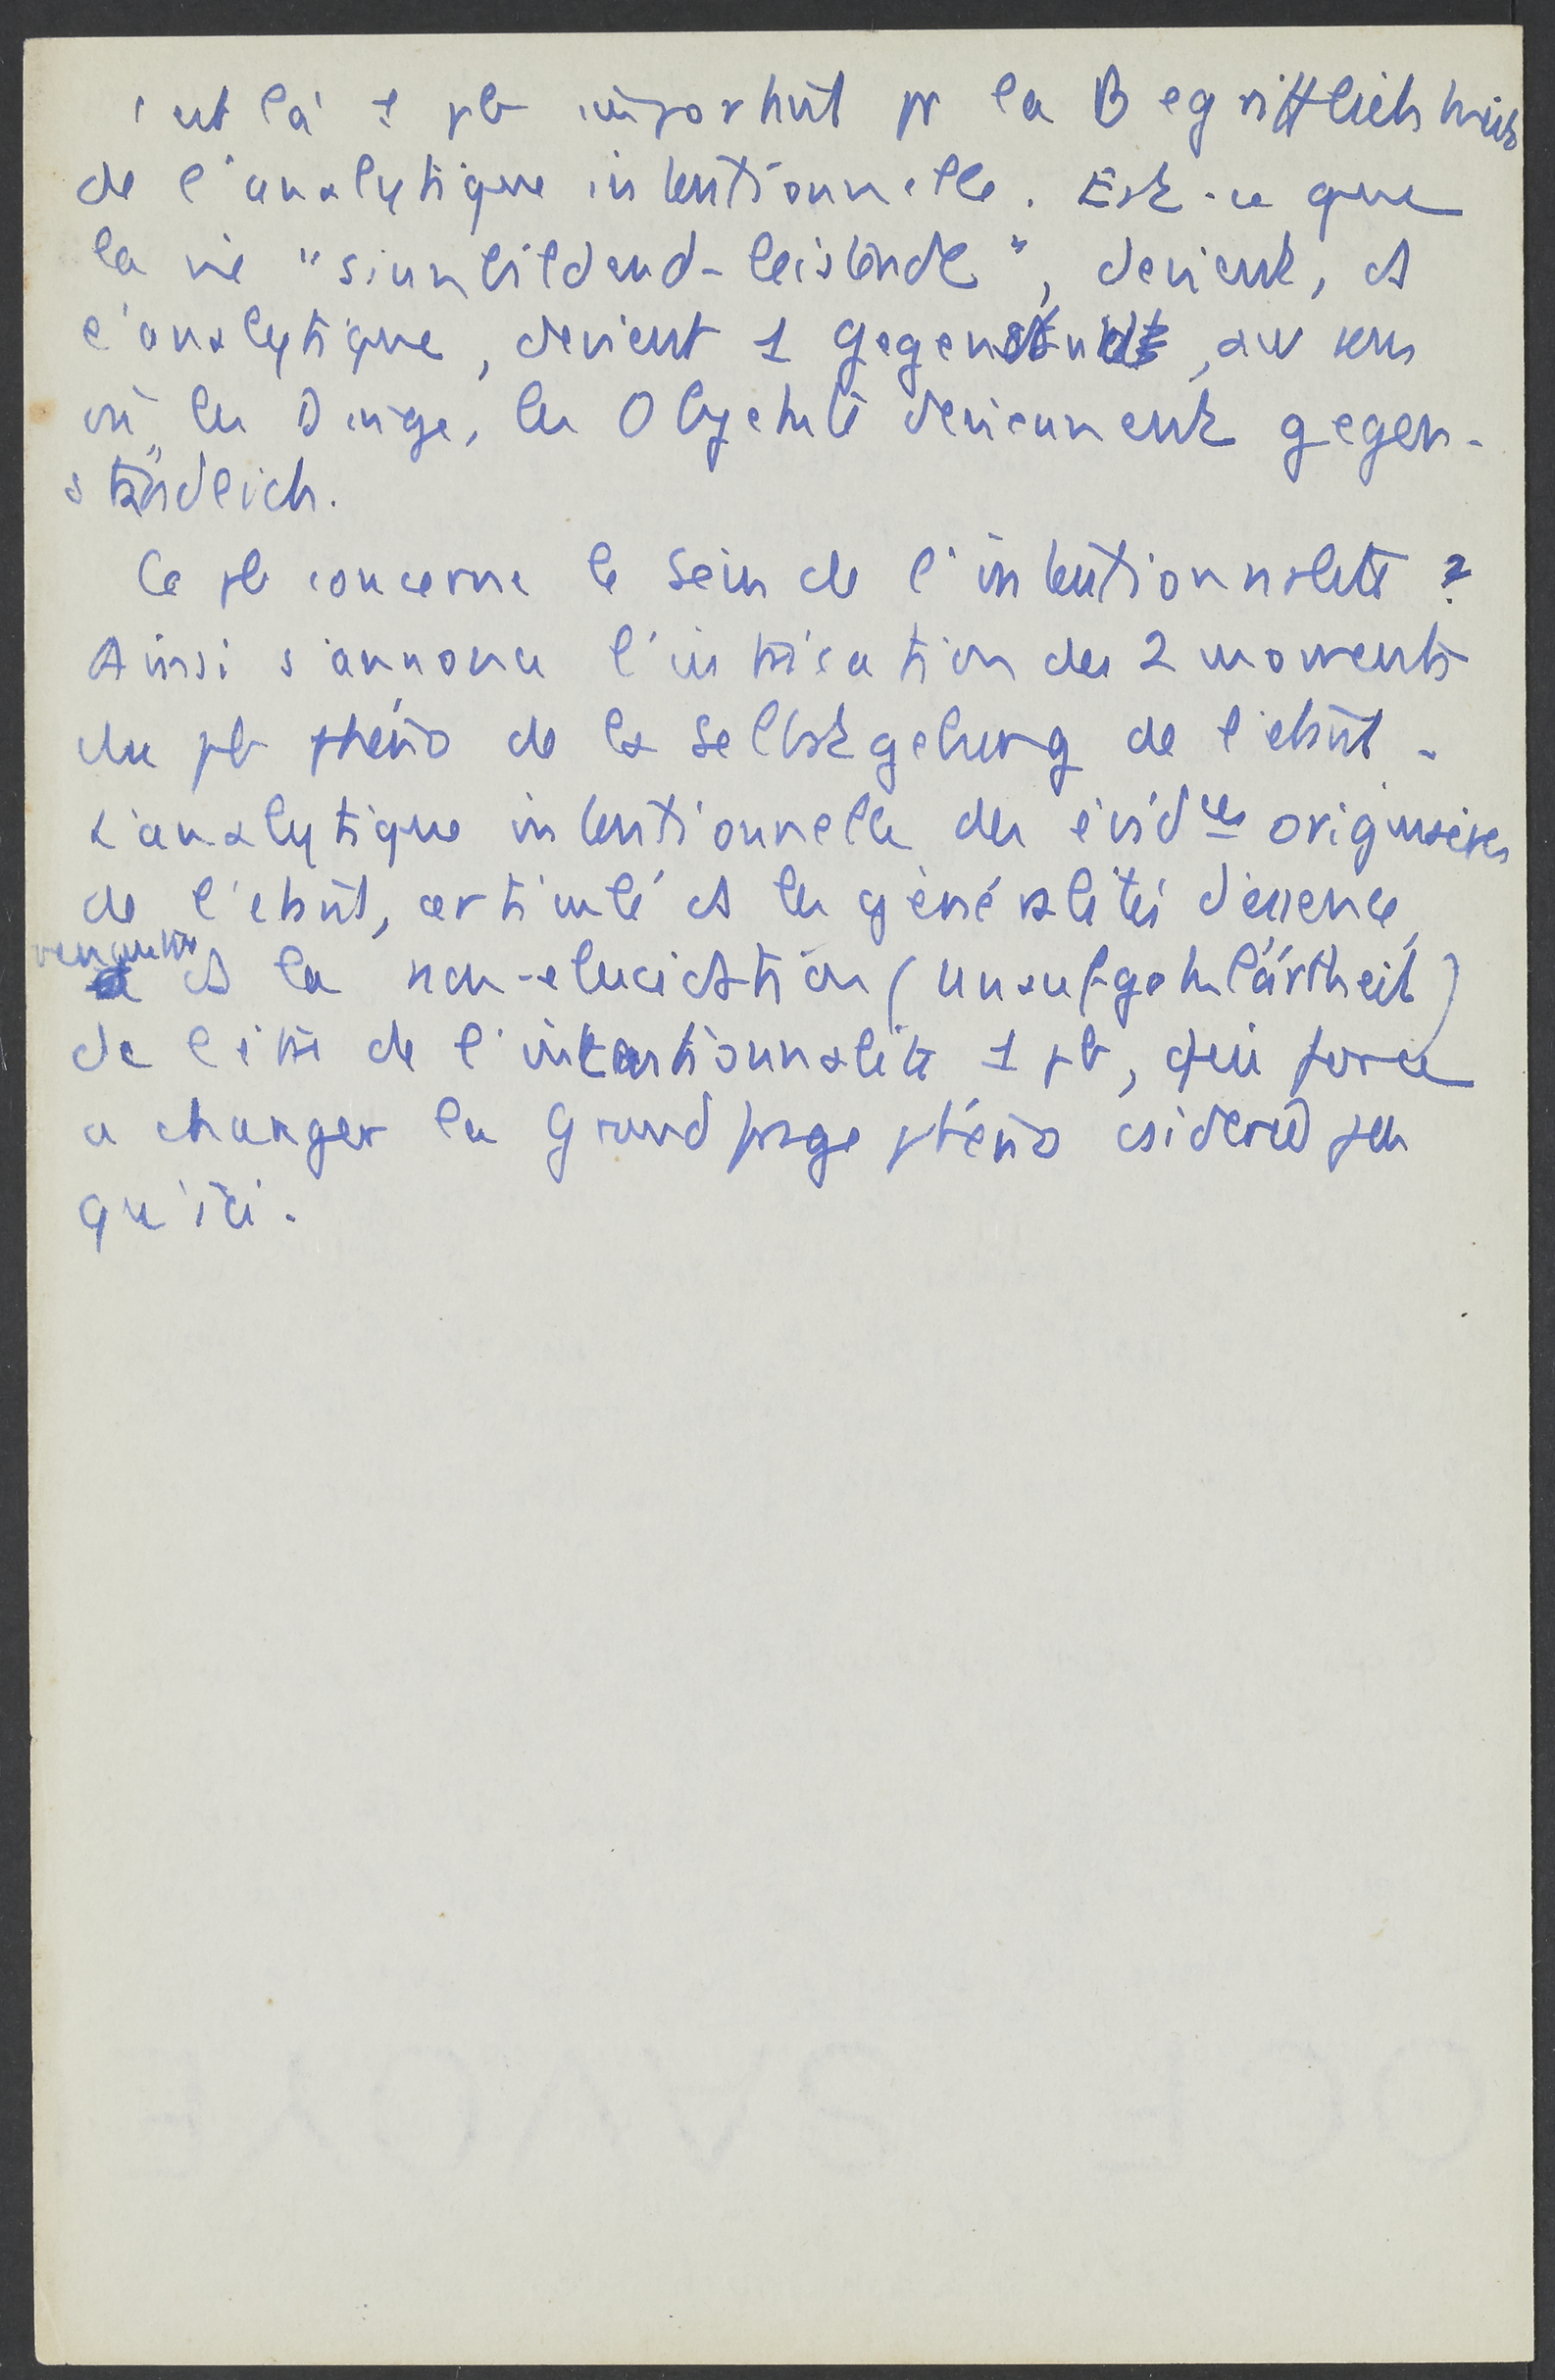 c'est là 1 pb important pr la Begrifflichkeit
de l'analytique intentionnelle. Est-ce que
la vie "sinnbildend-leistende", devient, ds
l'analytique, devient 1 Gegenstand, au sens
où les Dinge, les Objekte deviennent gegen-
ständlich.
Ce pb concerne le Sein de l'intentionnalité ?
Ainsi s'annonce l'intrication des 2 moments
du pb phéno de la Selbstgebung de l'étant.
L'analytique intentionnelle des évidces originaires
de l'étant, articulé ds les généralités d'essence,
rencontre ds la non-elucidation (Unaufgeklärtheit)
de l'être de l'intentionnalité 1 pb, qui force
a changer la Grundfrage phéno csidérée jus
qu'ici.